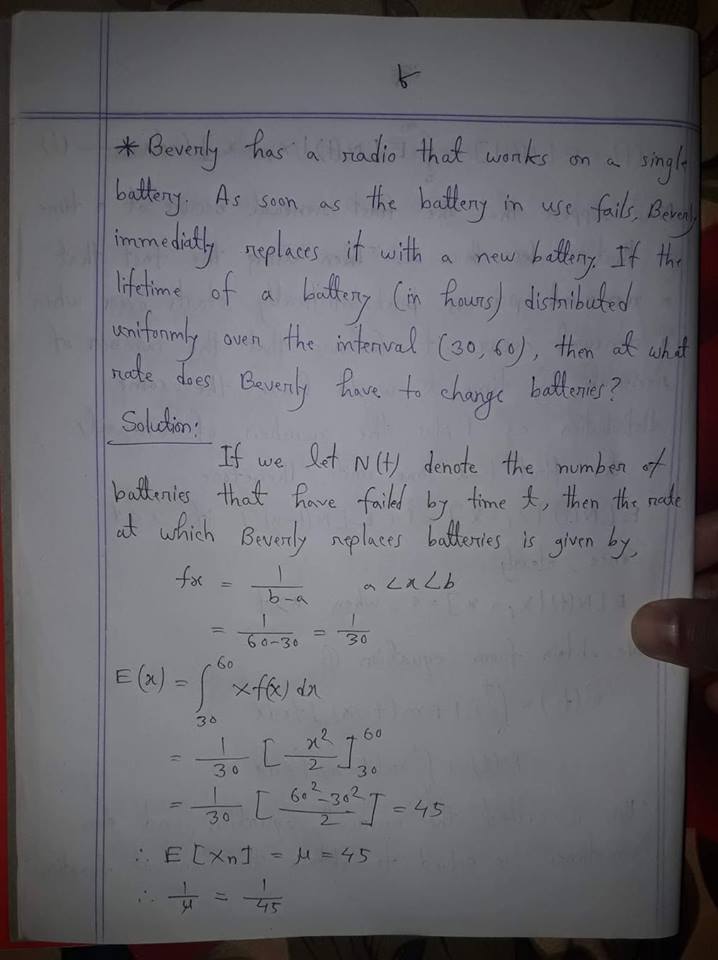 6
* Beverly has a radio that works on a single
battery. As soon as the battery in use fails, Beverly
immediatly replaces it with a new battery. If the
lifetime of a battery (in hours) distributed
uniformly over the interval (30, 60), then at what
rate does Beverly have to change batteries?
Solution:
If we let N(t) denote the number of
batteries that have failed by time t, then the rate
at which Beverly replaces batteries is given by,
fx = 1/(b-a)    a < x < b
= 1/(60-30) = 1/30
E(x) = ∫₃₀⁶⁰ x f(x) dx
= 1/30 [x²/2]₃₀⁶⁰
= 1/30 [(60² - 30²)/2] = 45
∴ E[Xn] = μ = 45
∴ 1/μ = 1/45